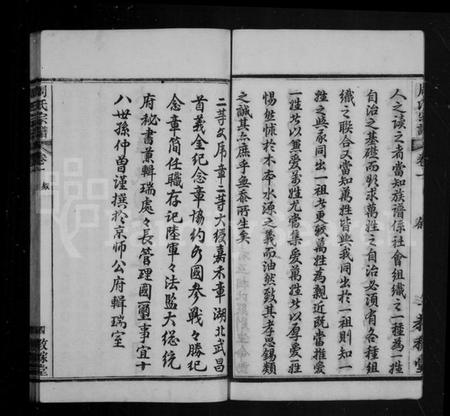 人之讀之者當知族譜係社會組織之一種為一姓
自治之基礎而欲求萬姓之自治必須有各種組
織之聯合又當知萬姓皆與我同出於一祖則知一
姓之與我同出一祖者更較萬姓為親近既當推愛
一姓者以兼愛萬姓尤當集愛萬姓者以厚愛一姓
惕然怵於木本水源之義而油然致其孝思錫類
之誠其亦庶乎無忝所生矣
二等文虎章二等大綬嘉禾章湖北武昌
首義全紀念章協約各國參戰々勝紀
念章簡任職存記陸軍々法監大總統
府秘書兼輯瑞處々長管理國璽事宜十
八世孫仲曾謹撰於京師公府輯瑞室
周氏宗譜
卷一
敘
教稼堂
周氏宗譜
卷一
教稼堂